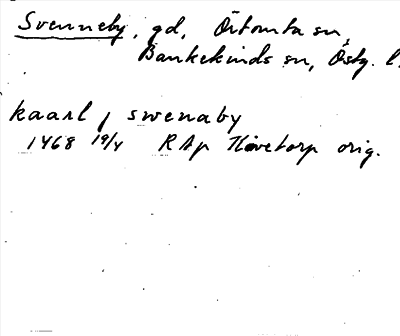 Svenneby, gd, Örtomta sn,
Bankekinds sn, Östg. l.
kaarl j swenaby
1468 19/4 RAp Hövetorp orig.